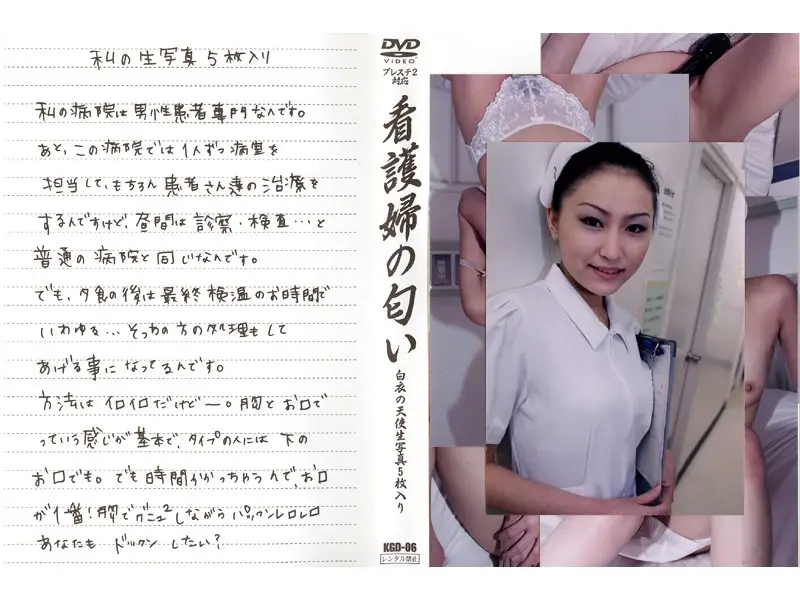 私の生写真5枚入り
私の病院は男性患者専門なんです。
あと、この病院では1人ずつ病室を
担当して、もちろん患者さん達の治療を
するんですけど、昼間は診察・検査…と
普通の病院と同じなんです。
でも、夕食の後は最終検温のお時間で
いわゆる…そっちの方の処理もして
あげる事になってるんです。
方法はイロイロだけど〜。胸とお口で
っていう感じが基本で、タイプの人には下の
お口でも。でも時間かかっちゃうんで、お口
が1番!胸でグニュ2しながらパックンレロレロ
あなたもドックンしたい?
DVD
VIDEO
プレステ2
対応
看護婦の匂い
白衣の天使生写真5枚入り
KGD-06
レンタル禁止